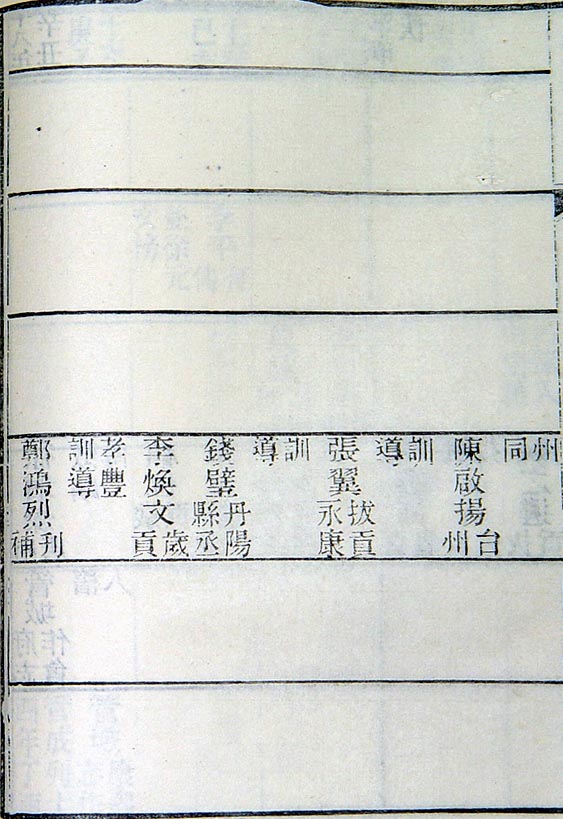 州同
陳啟揚台州
訓導
張翼拔貢永康
訓導
錢璧丹陽縣丞
李煥文歲貢
孝豐訓導
鄭鴻烈刊補